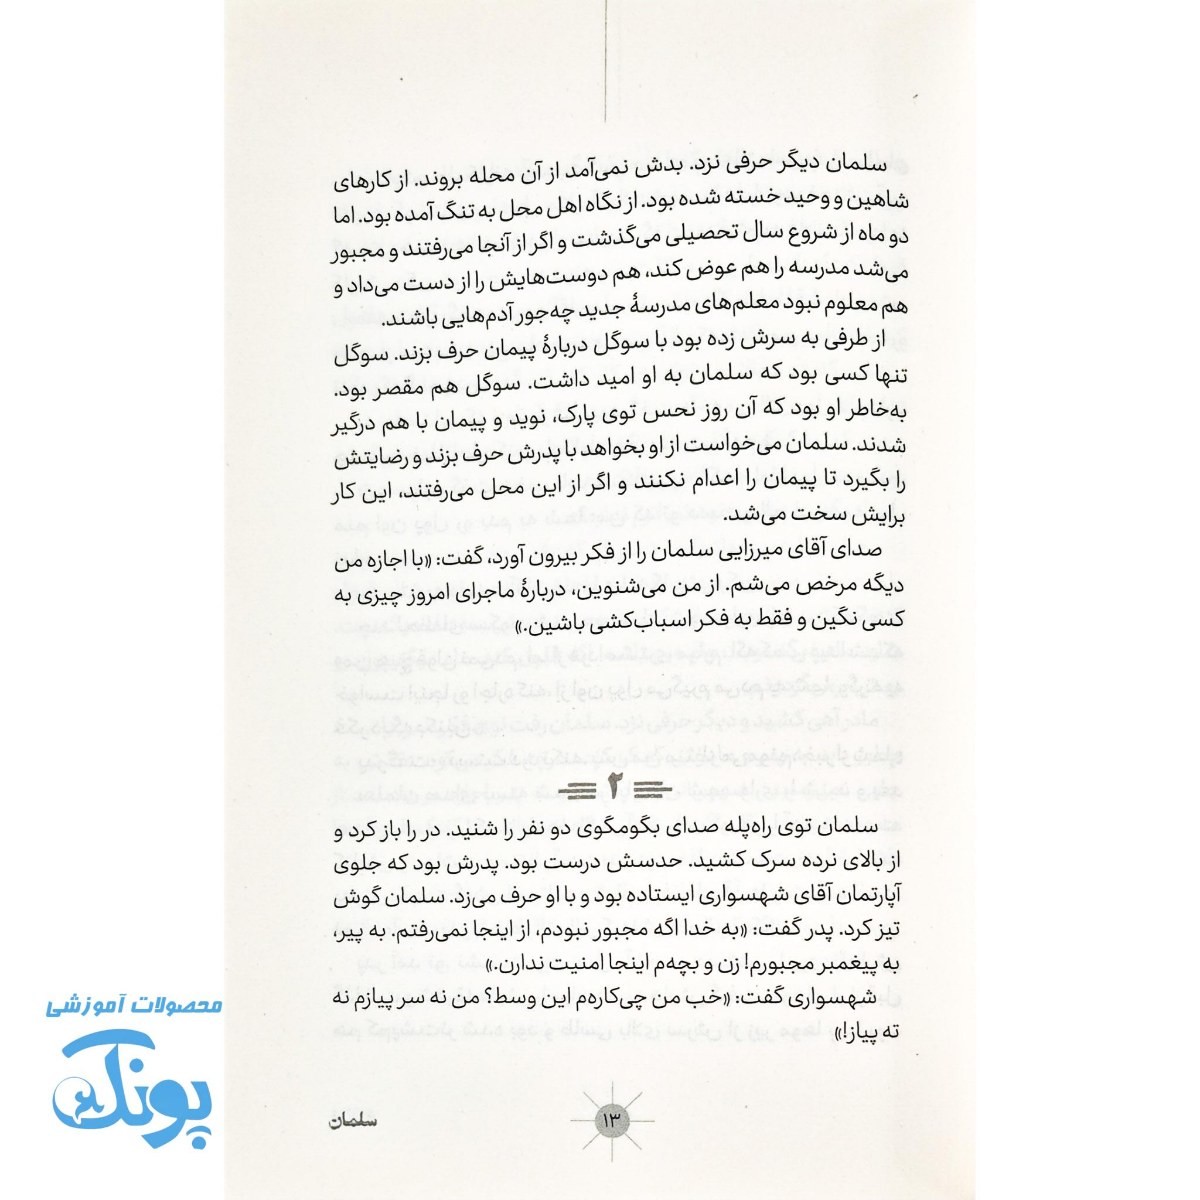 سلمان دیگر حرفی نزد. بدش نمی‌آمد از آن محله بروند. از کارهای
شاهین و وحید خسته شده بود. از نگاه اهل محل به تنگ آمده بود. اما
دو ماه از شروع سال تحصیلی می‌گذشت و اگر از آنجا می‌رفتند و مجبور
می‌شد مدرسه را هم عوض کند، هم دوست‌هایش را از دست می‌داد و
هم معلوم نبود معلم‌های مدرسهٔ جدید چه‌جور آدم‌هایی باشند.
از طرفی به سرش زده بود با سوگل دربارهٔ پیمان حرف بزند. سوگل
تنها کسی بود که سلمان به او امید داشت. سوگل هم مقصر بود.
به‌خاطر او بود که آن روز نحس توی پارک، نوید و پیمان با هم درگیر
شدند. سلمان می‌خواست از او بخواهد با پدرش حرف بزند و رضایتش
را بگیرد تا پیمان را اعدام نکنند و اگر از این محل می‌رفتند، این کار
برایش سخت می‌شد.
صدای آقای میرزایی سلمان را از فکر بیرون آورد، گفت: «با اجازه من
دیگه مرخص می‌شم. از من می‌شنوین، دربارهٔ ماجرای امروز چیزی به
کسی نگین و فقط به فکر اسباب‌کشی باشین.»
۲
سلمان توی راه‌پله صدای بگومگوی دو نفر را شنید. در را باز کرد و
از بالای نرده سرک کشید. حدسش درست بود. پدرش بود که جلوی
آپارتمان آقای شهسواری ایستاده بود و با او حرف می‌زد. سلمان گوش
تیز کرد. پدر گفت: «به خدا اگه مجبور نبودم، از اینجا نمی‌رفتم. به پیر،
به پیغمبر مجبورم! زن و بچه‌م اینجا امنیت ندارن.»
شهسواری گفت: «خب من چی‌کاره‌م این وسط؟ من نه سر پیازم نه
ته پیاز!»
محصولات آموزشی
پونک
۱۳
سلمان